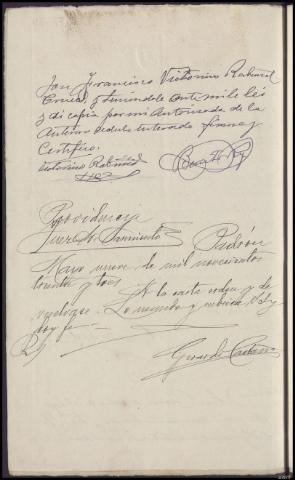 Don Francisco Victorino Rabinad
Cruz y teniendole ante mi le leí
y di copia por mi autorizada de la
anterior cedula enterado firma y
Certifico.
Victorino Rabinad
Providencia
Juez Sr Sarmiento Padrón
Mayo nueve de mil novecientos
treinta y tres
A la carta orden y de
vuelvase. Lo mando y rubrica S. Sª
doy fe.